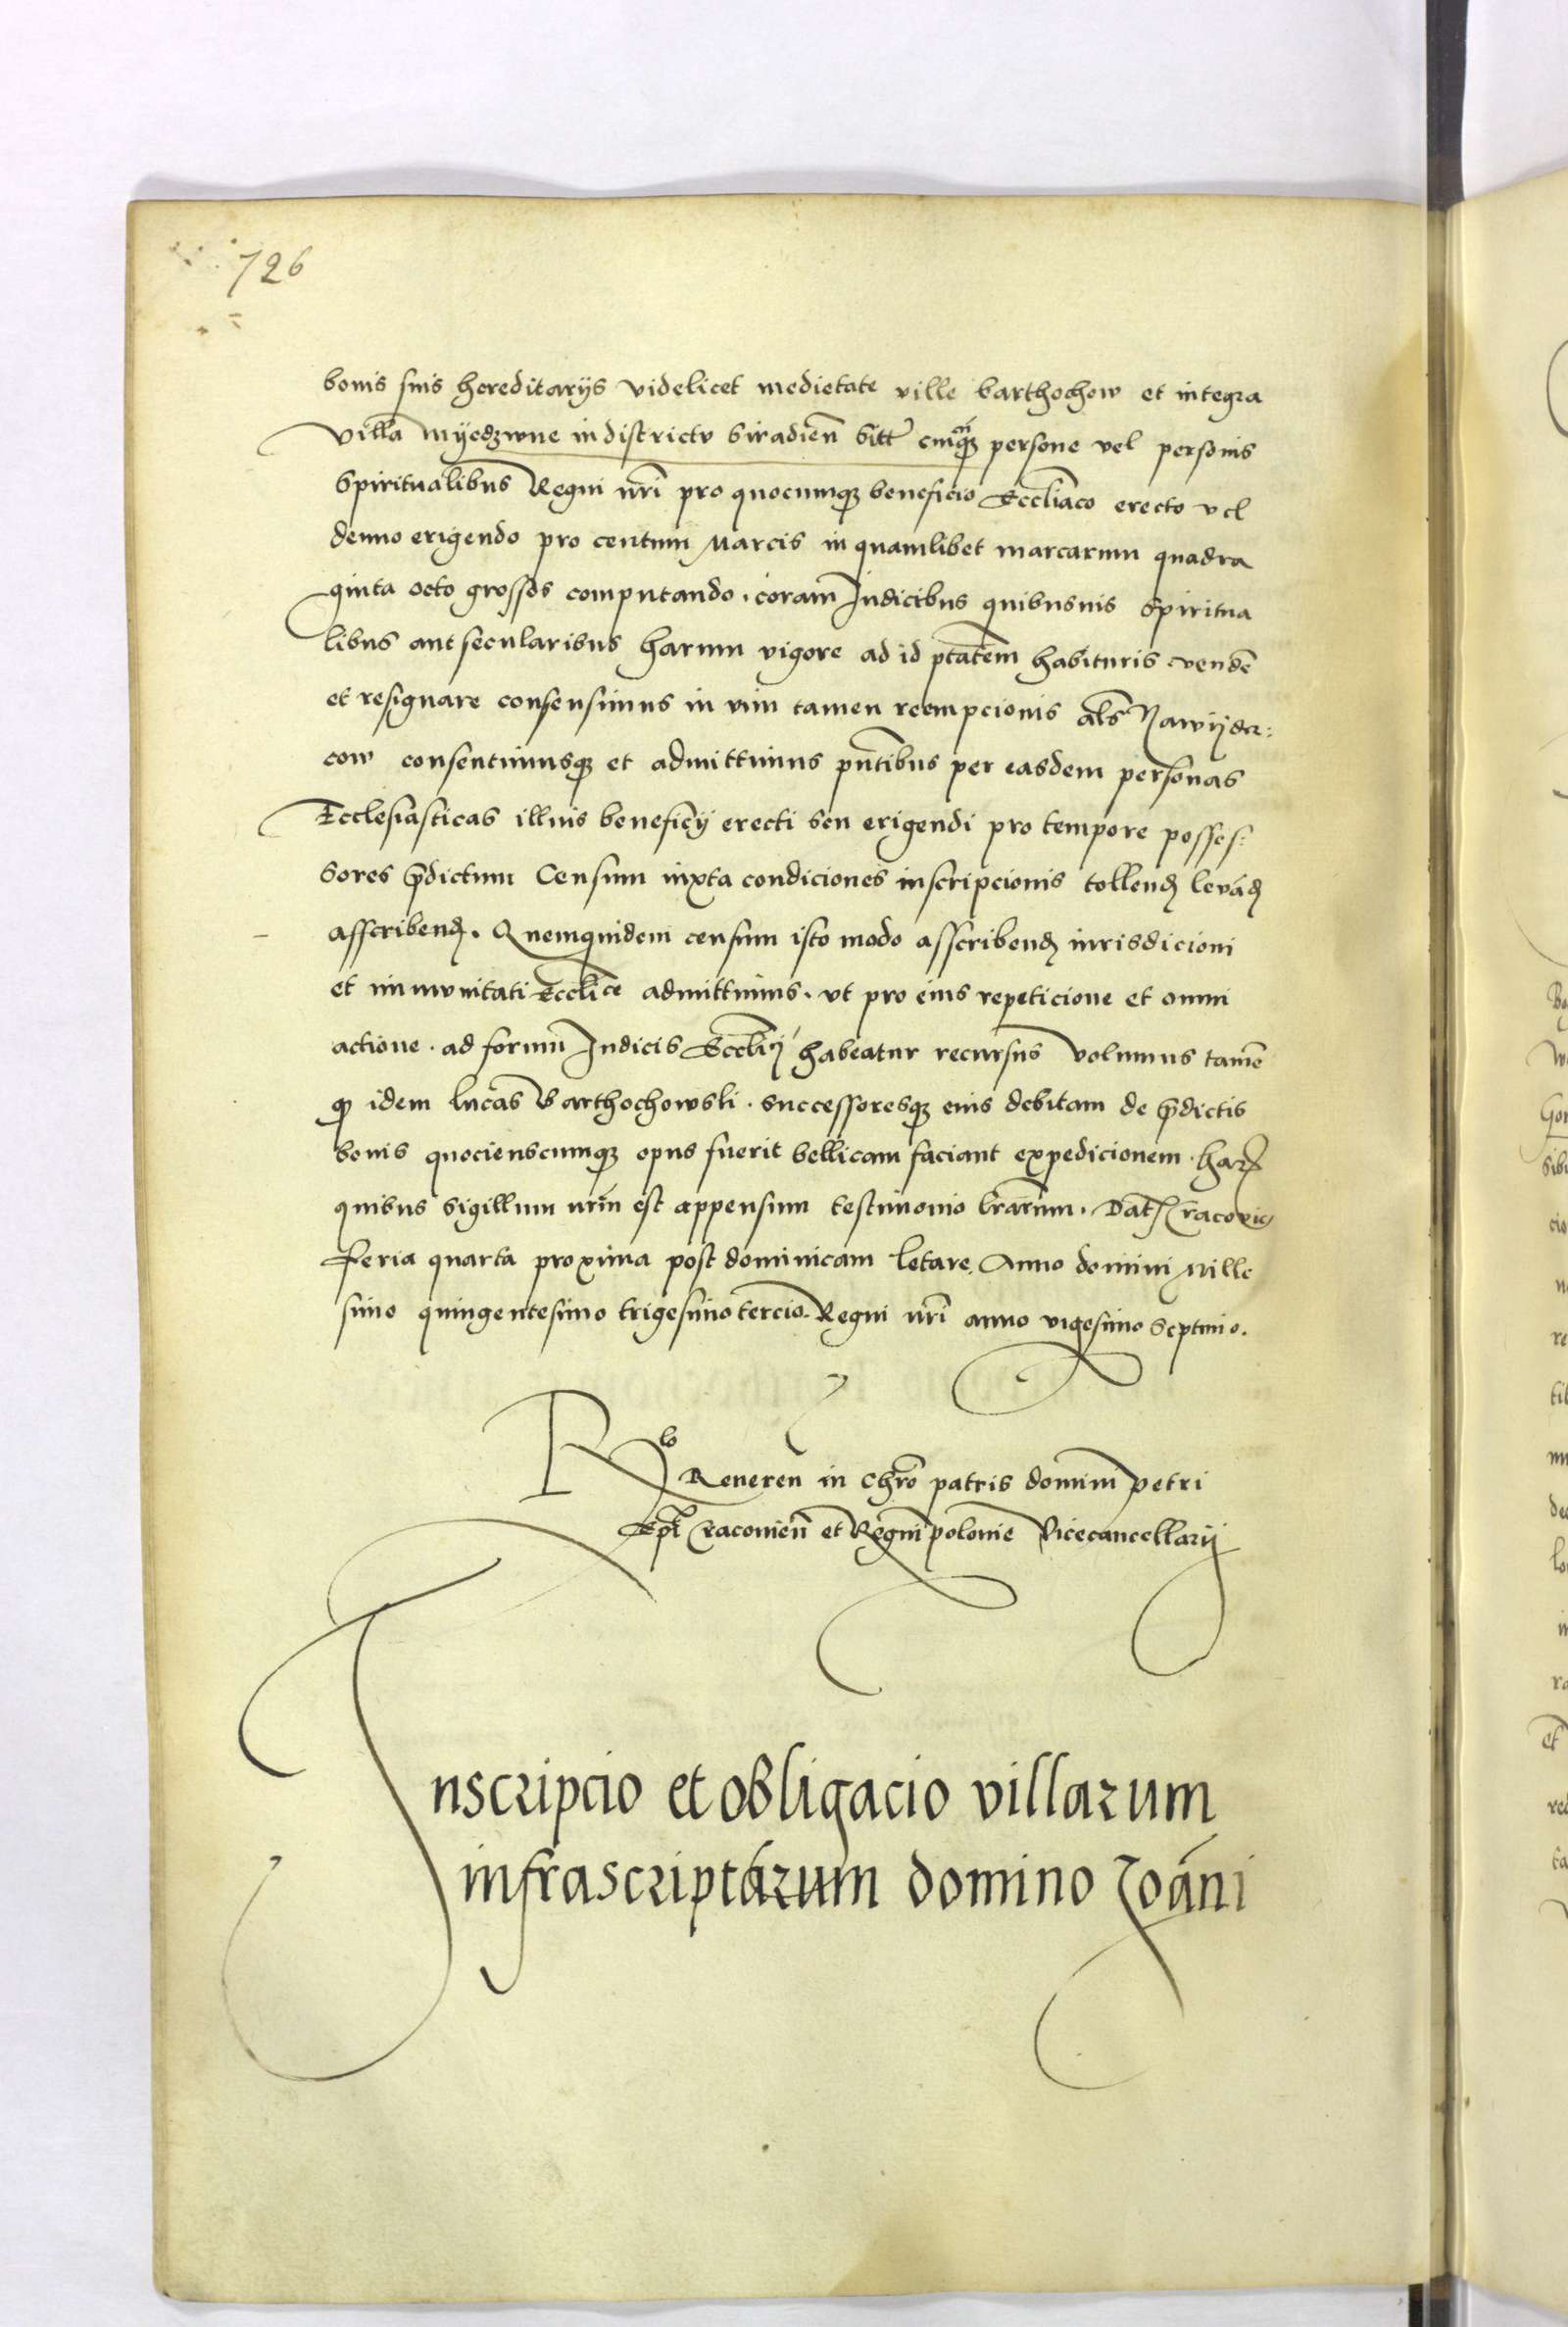 726
bonis suis hereditarys videlicet medietate ville barthochow et integra
villa myedzwne in districtu Siradien̄ sitt̄ cuicūq₃ persone vel personis
Spiritualibus Regni nr̄i pro quocumq₃ beneficio Eccl̄iaco erecto vel
denuo erigendo pro centum Marcis in quamlibet marcarum quadra
ginta octo grossos computando. coram Iudicibus quibusuis Spiritua
libus aut secularibus harum vigore ad id ptātem habituris vendē
et resignare consensimus in vim tamen reempcionis al̄s Nawyder:
cow consentimusq₃ et admittimus pn̄tibus per easdem personas
Ecclesiasticas illius beneficy erecti seu erigendi pro tempore posses:
sores p̄dictum Censum iuxta condiciones inscripcionis tollend levād
asscribend. Quemquidem censum isto modo asscribend iurisdicioni
et immunitati Eccl̄ice admittimus. vt pro eius repeticione et omni
actione. ad forum Iudicis Eccl̄ij habeatur recursus volumus tamē
q̨ idem lucas Barthochowski. successoresq₃ eius debitam de p̄dictis
bonis quocienscumq₃ opus fuerit bellicam faciant expedicionem. har
quibus sigillum nr̄m est appensum testimonio lr̄arum. Dat̄ Cracovie
feria quarta proxima post dominicam letare. Anno domini Mille
simo quingentesimo trigesimo tercio. Regni nr̄i anno vigesimo septimo.
Rlo Reueren in Chr̄o patris domini petri
Ep̄i Cracouien̄ et Regni polonie Vicecancellarij
Inscripcio et obligacio villarum
infrascriptarum domino Ioāni